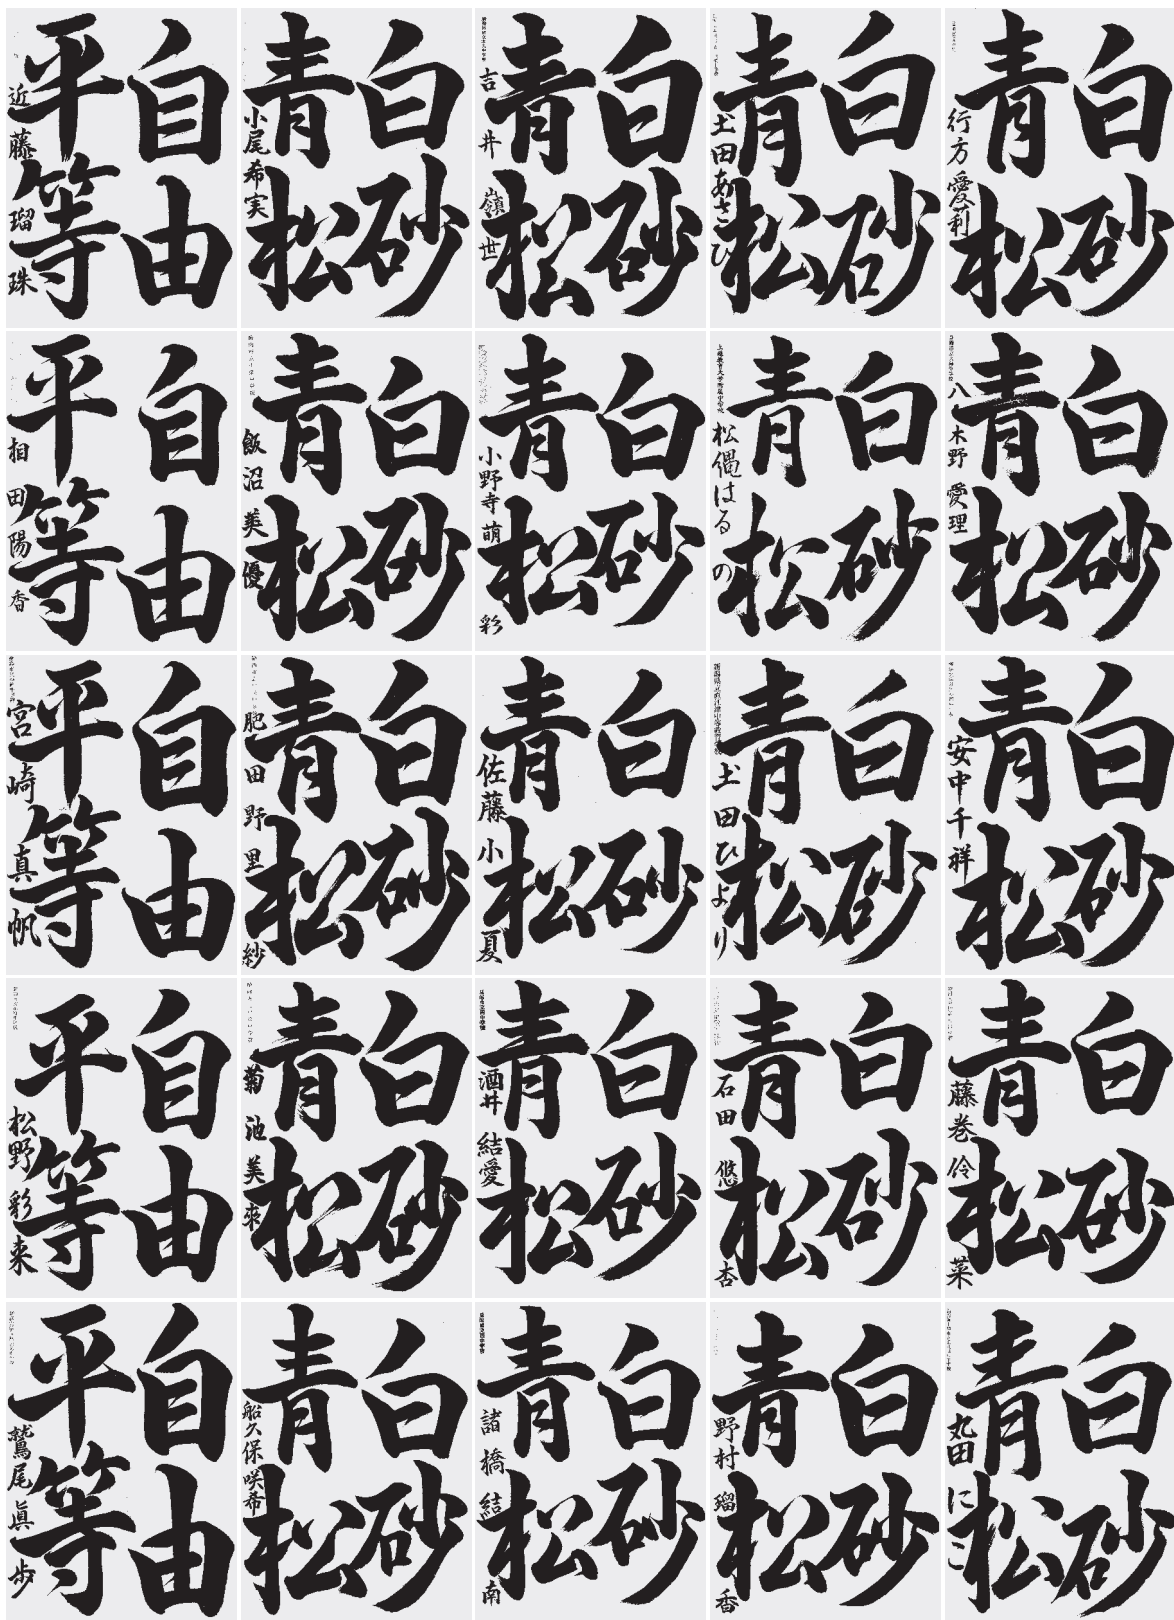 白砂
青松
行方愛莉
白砂
青松
土田あさひ
白砂
青松
吉井嶺世
白砂
青松
小尾希実
自由
平等
近藤瑠珠
白砂
青松
八木野愛理
白砂
青松
上越教育大学附属中学校
松縄はるの
白砂
青松
小野寺萌彩
白砂
青松
飯沼美優
自由
平等
相田陽香
白砂
青松
安中千祥
白砂
青松
新潟県立直江津中等教育学校
土田ひより
白砂
青松
佐藤小夏
白砂
青松
肥田野里紗
自由
平等
宮崎真帆
白砂
青松
藤巻伶菜
白砂
青松
石田悠杏
白砂
青松
酒井結愛
白砂
青松
菊池美來
自由
平等
松野彩来
白砂
青松
丸田にこ
白砂
青松
野村瑠香
白砂
青松
諸橋結南
白砂
青松
船久保咲希
自由
平等
鷲尾眞歩